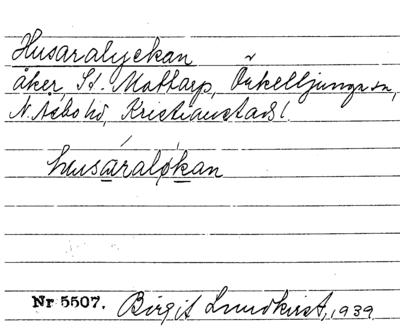 Husaralyckan
åker, St. Mattarp, Örkelljunga sn,
N. Åsbo hd, Kristianstads l.
husáralykan
Nr 5507. Birgit Lundkvist, 1939